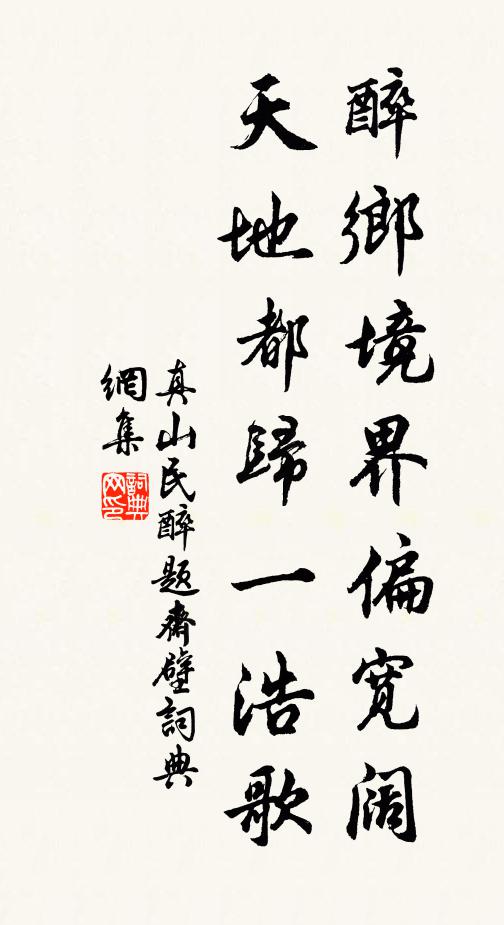 醉鄉境界偏寬闊
天地都歸一浩歌
真山民醉題齋壁詞典
網集
詞典
网印